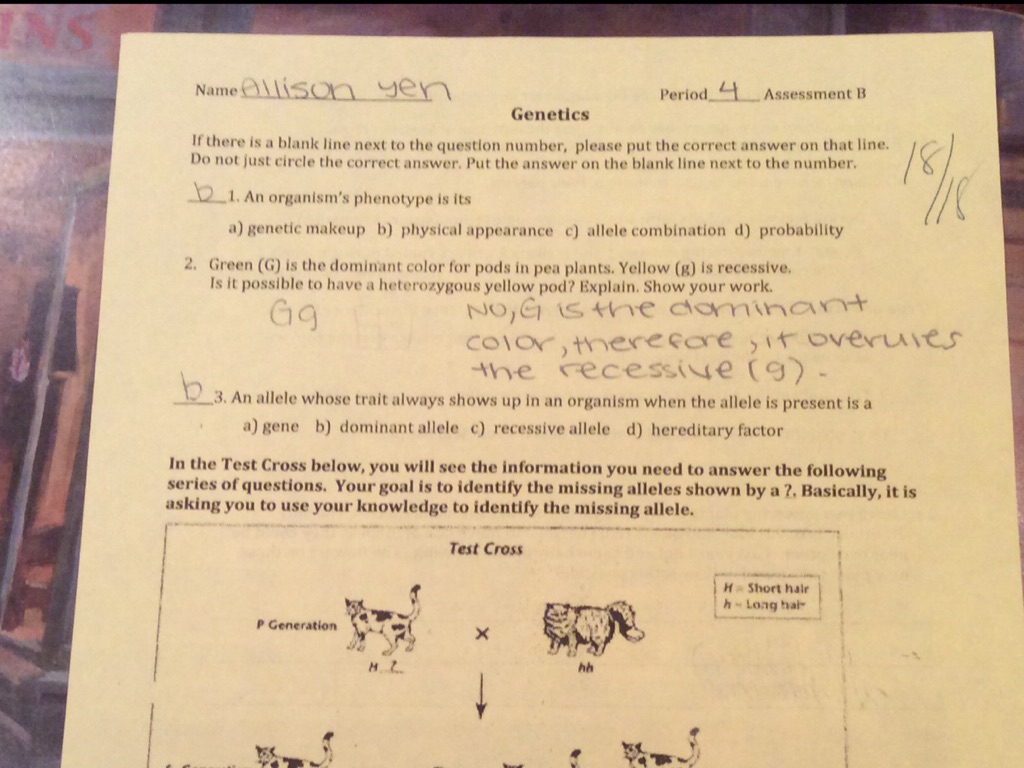 INS
Name Allison Yen Period 4 Assessment B
Genetics
If there is a blank line next to the question number, please put the correct answer on that line.
Do not just circle the correct answer. Put the answer on the blank line next to the number.
18/18
b 1. An organism's phenotype is its
a) genetic makeup b) physical appearance c) allele combination d) probability
2. Green (G) is the dominant color for pods in pea plants. Yellow (g) is recessive.
Is it possible to have a heterozygous yellow pod? Explain. Show your work.
Gg
No, G is the dominant
color, therefore, it overules
the recessive (g).
b 3. An allele whose trait always shows up in an organism when the allele is present is a
a) gene b) dominant allele c) recessive allele d) hereditary factor
In the Test Cross below, you will see the information you need to answer the following
series of questions. Your goal is to identify the missing alleles shown by a ?. Basically, it is
asking you to use your knowledge to identify the missing allele.
Test Cross
H = Short hair
h = Long hair
P Generation
×
H ?
hh